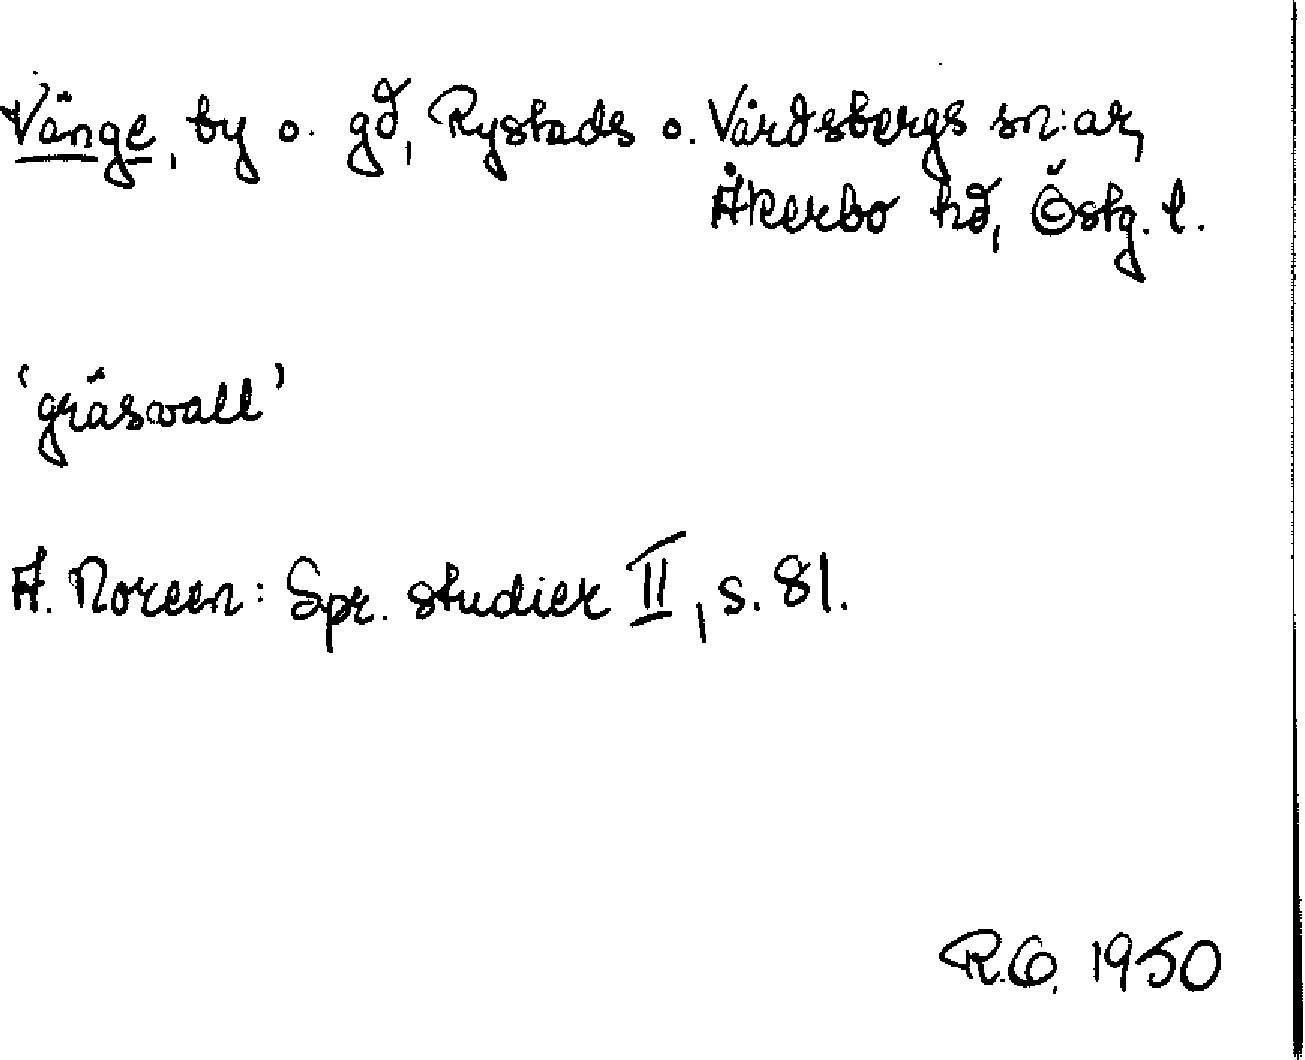 Vänge, by o. gd, Rystads o. Vårdsbergs sn:ar,
Åkerbo hd, Östg. l.
'gräsvall'
A. Noreen: Spr. studier II, s. 81.
R.O. 1950